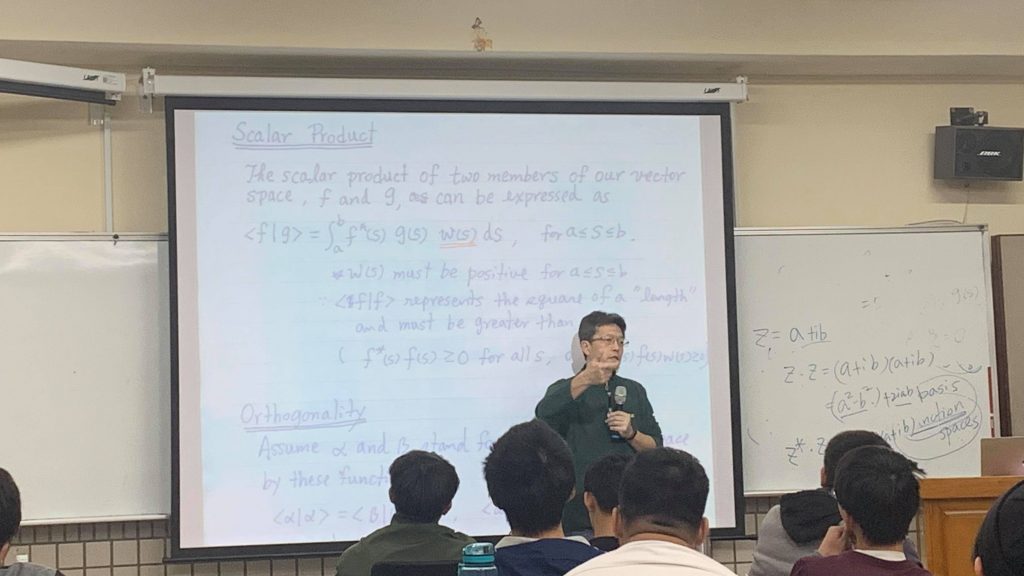 Scalar Product
The scalar product of two members of our vector
space, f and g, as can be expressed as
<f|g> = ∫ₐᵇ f*(s) g(s) w(s) ds, for a≤s≤b.
* w(s) must be positive for a≤s≤b
<f|f> represents the square of a "length"
and must be greater than
( f*(s) f(s) ≥0 for all s,
Orthogonality
Assume α and β stand
by these
<α|α> = <β|
z = a+ib
z·z = (a+ib)(a+ib)
(a²-b²)+2iab
basis
z*·z
(a+ib)
spaces